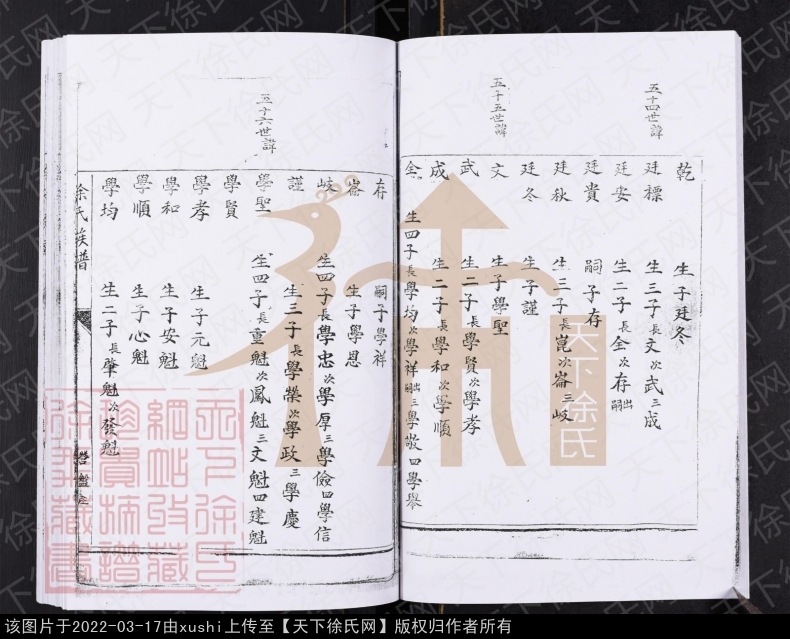 五十四世諱
乾 生子廷冬
廷標 生三子長文次武三成
廷安 生二子長全次存出嗣
廷貴 嗣子存
廷秋 生三子長崑次崙三岐
廷冬 生子謹
五十五世諱
文 生子學聖
武 生二子長學賢次學孝
成 生二子長學和次學順
全 生四子長學均次學祥出嗣三學敬四學舉
存 嗣子學祥
崙 生子學恩
岐 生四子長學忠次學厚三學儉四學信
謹 生三子長學榮次學政三學慶
五十六世諱
學聖 生四子長重魁次鳳魁三文魁四建魁
學賢
學孝 生子元魁
學和 生子安魁
學順 生子心魁
學均 生二子長肇魁次發魁
徐氏族譜
天下徐氏
天下徐氏网
该图片于2022-03-17由xushi上传至【天下徐氏网】版权归作者所有